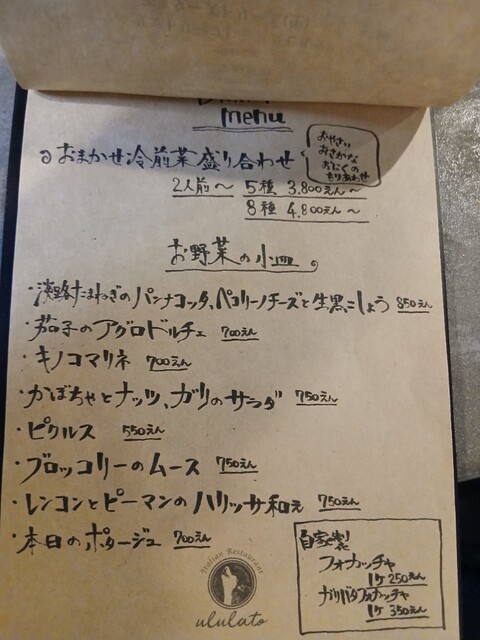 menu
おまかせ冷前菜盛り合わせ
おやさい
おさかな
おにくの
もりあわせ
2人前〜 5種 3.800えん〜
8種 4.800えん〜
お野菜の小皿
・淡路たまねぎのパンナコッタ、ペコリーノチーズと生黒こしょう 850えん
・茄子のアグロドルチェ 700えん
・キノコマリネ 700えん
・かぼちゃとナッツ、ガリのサラダ 750えん
・ピクルス 550えん
・ブロッコリーのムース 750えん
・レンコンとピーマンのハリッサ和え 750えん
・本日のポタージュ 700えん
自家製
フォカッチャ
1ケ 250えん
ガリバタフォカッチャ
1ケ 350えん
Italian Restaurant
ululato